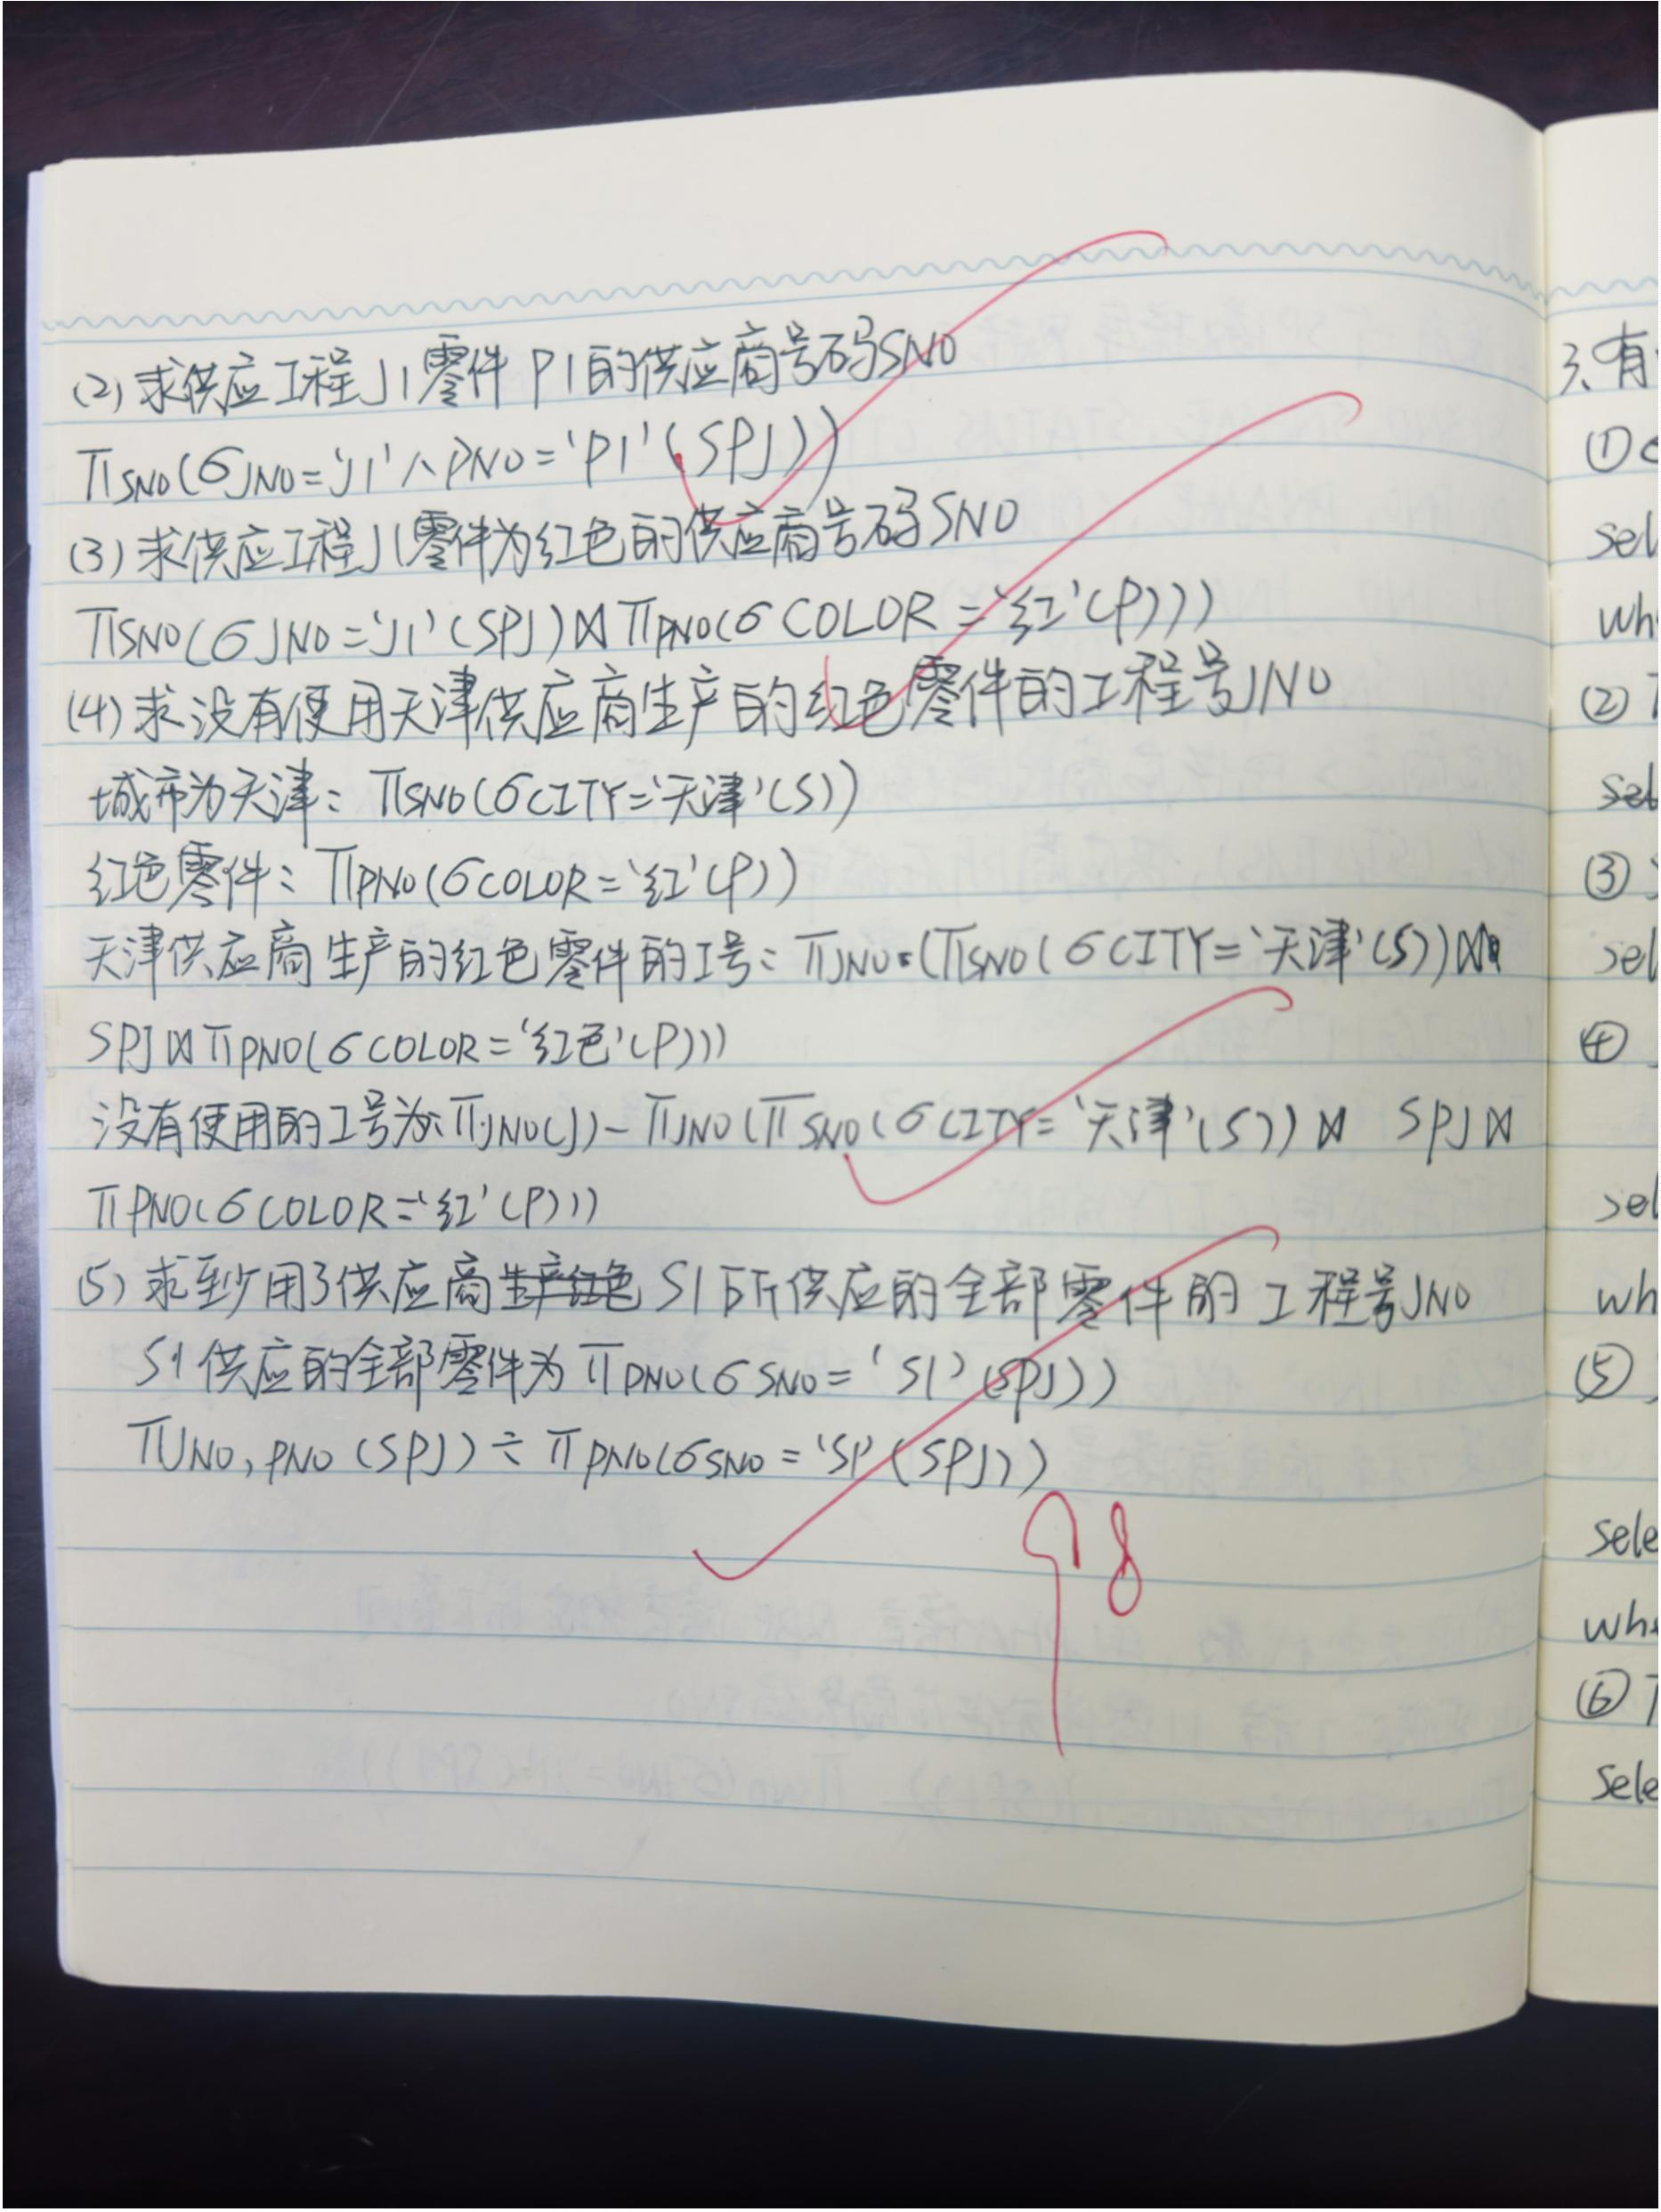 (2) 求供应工程J1零件P1的供应商号码SNO
πSNO(σJNO='J1'∧PNO='P1'(SPJ))
(3) 求供应工程J1零件为红色的供应商号码SNO
πSNO(σJNO='J1'(SPJ)⋈πPNO(σCOLOR='红'(P)))
(4) 求没有使用天津供应商生产的红色零件的工程号JNO
城市为天津: πSNO(σCITY='天津'(S))
红色零件: πPNO(σCOLOR='红'(P))
天津供应商生产的红色零件的工号: πJNO(πSNO(σCITY='天津'(S))⋈
SPJ⋈πPNO(σCOLOR='红色'(P)))
没有使用的工号为: πJNO(J)-πJNO(πSNO(σCITY='天津'(S))⋈ SPJ⋈
πPNO(σCOLOR='红'(P)))
(5) 求至少用了供应商生产红色S1所供应的全部零件的工程号JNO
S1供应的全部零件为πPNO(σSNO='S1'(SPJ))
πJNO,PNO(SPJ)÷πPNO(σSNO='S1'(SPJ))
98
3、有
①
sel
wh
②
sel
③
sel
④
sel
wh
⑤
sele
whe
⑥
sele